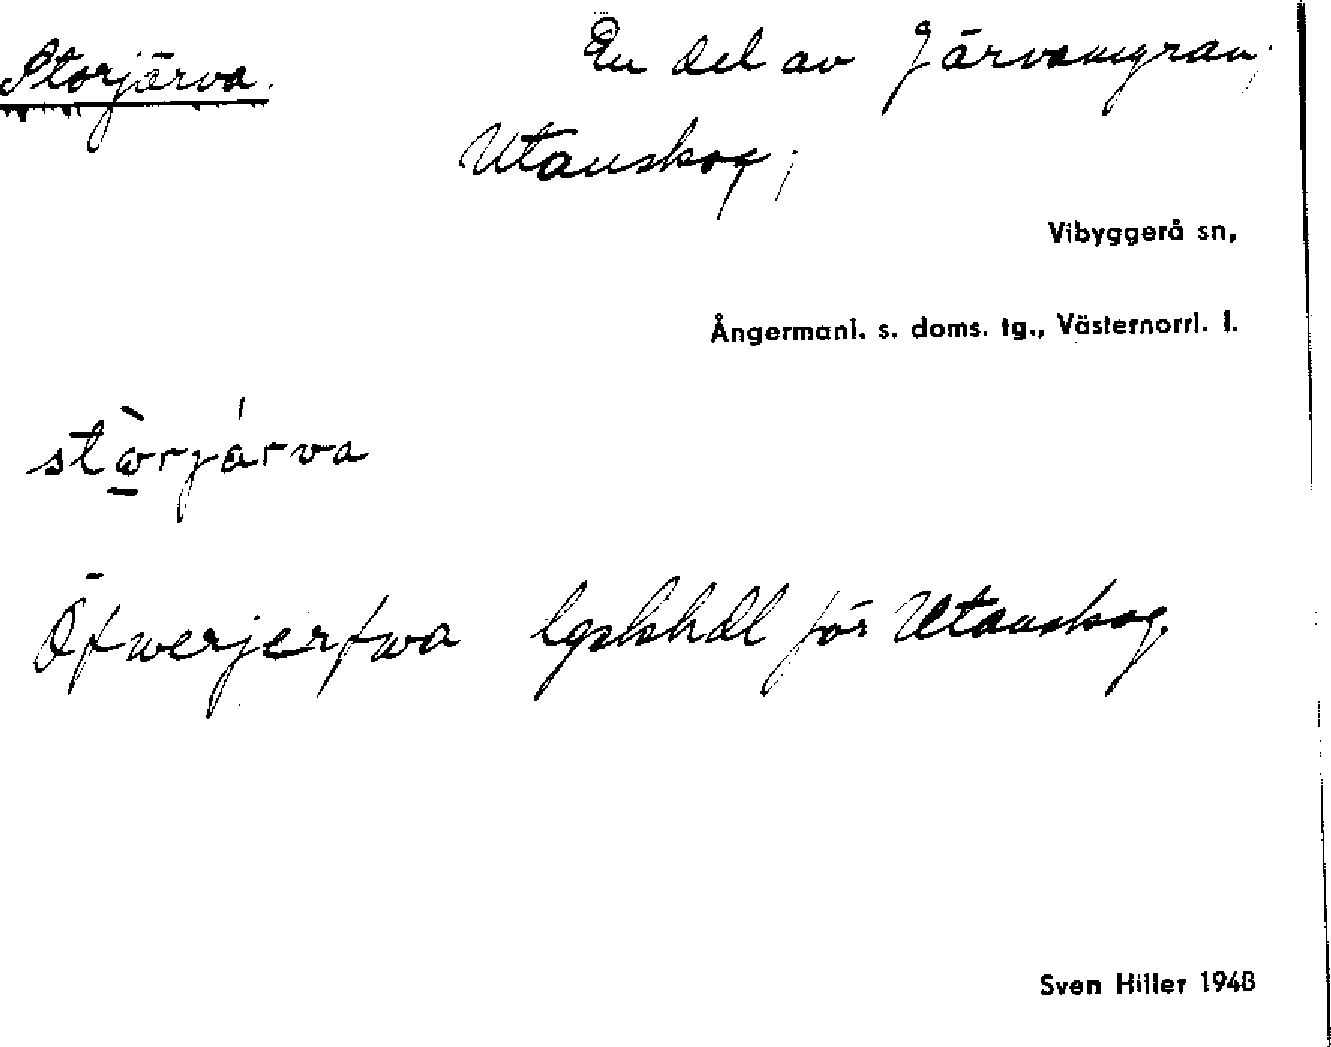 Storjärva. En del av Järvamyran;
Utanskog;
Vibyggerå sn,
Ångermanl. s. doms. tg., Västernorrl. l.
stòrjárva
Öfwerjerfwa lgskhdl för Utanskog.
Sven Hiller 1948